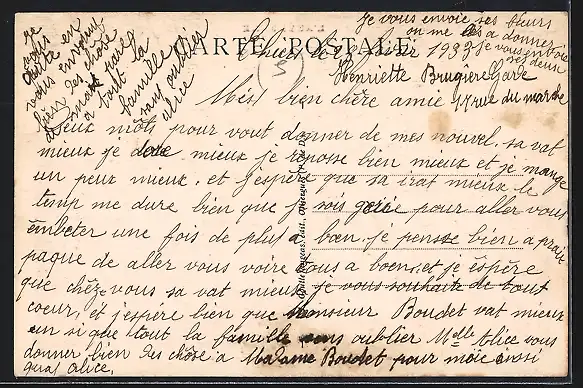 je vous envoie ses fleurs
on me les a donner
je vous envoie
ses deux
je
vous
quitte en
vous envoyant
bien des chôse
a toute la
famille
sans oublier
alice
CARTE POSTALE
5
fevrier 1933
Henriette Brugiere
17 rue du marche
Mes bien chère amie
Deux môts pour vout donner de mes nouvel. sa vat
mieux je dore mieux je repose bien mieux et je mange
un peux mieux. et j'espère que sa irat mieux le
temp me dure bien que je sois guérie pour aller vous
êmbeter une fois de plus a boen. je pense bien a
paque de aller vous voire tous a boen. et je éspère
que chêz vous sa vat mieux je vous souhaite de tout
coeur, et j'espère bien que monsieur Boudet vat mieux
en si que tout la famille sans oublier Melle Alice vous
donner bien des chôse a Madame Boudet pour moie ausi
qua alice.